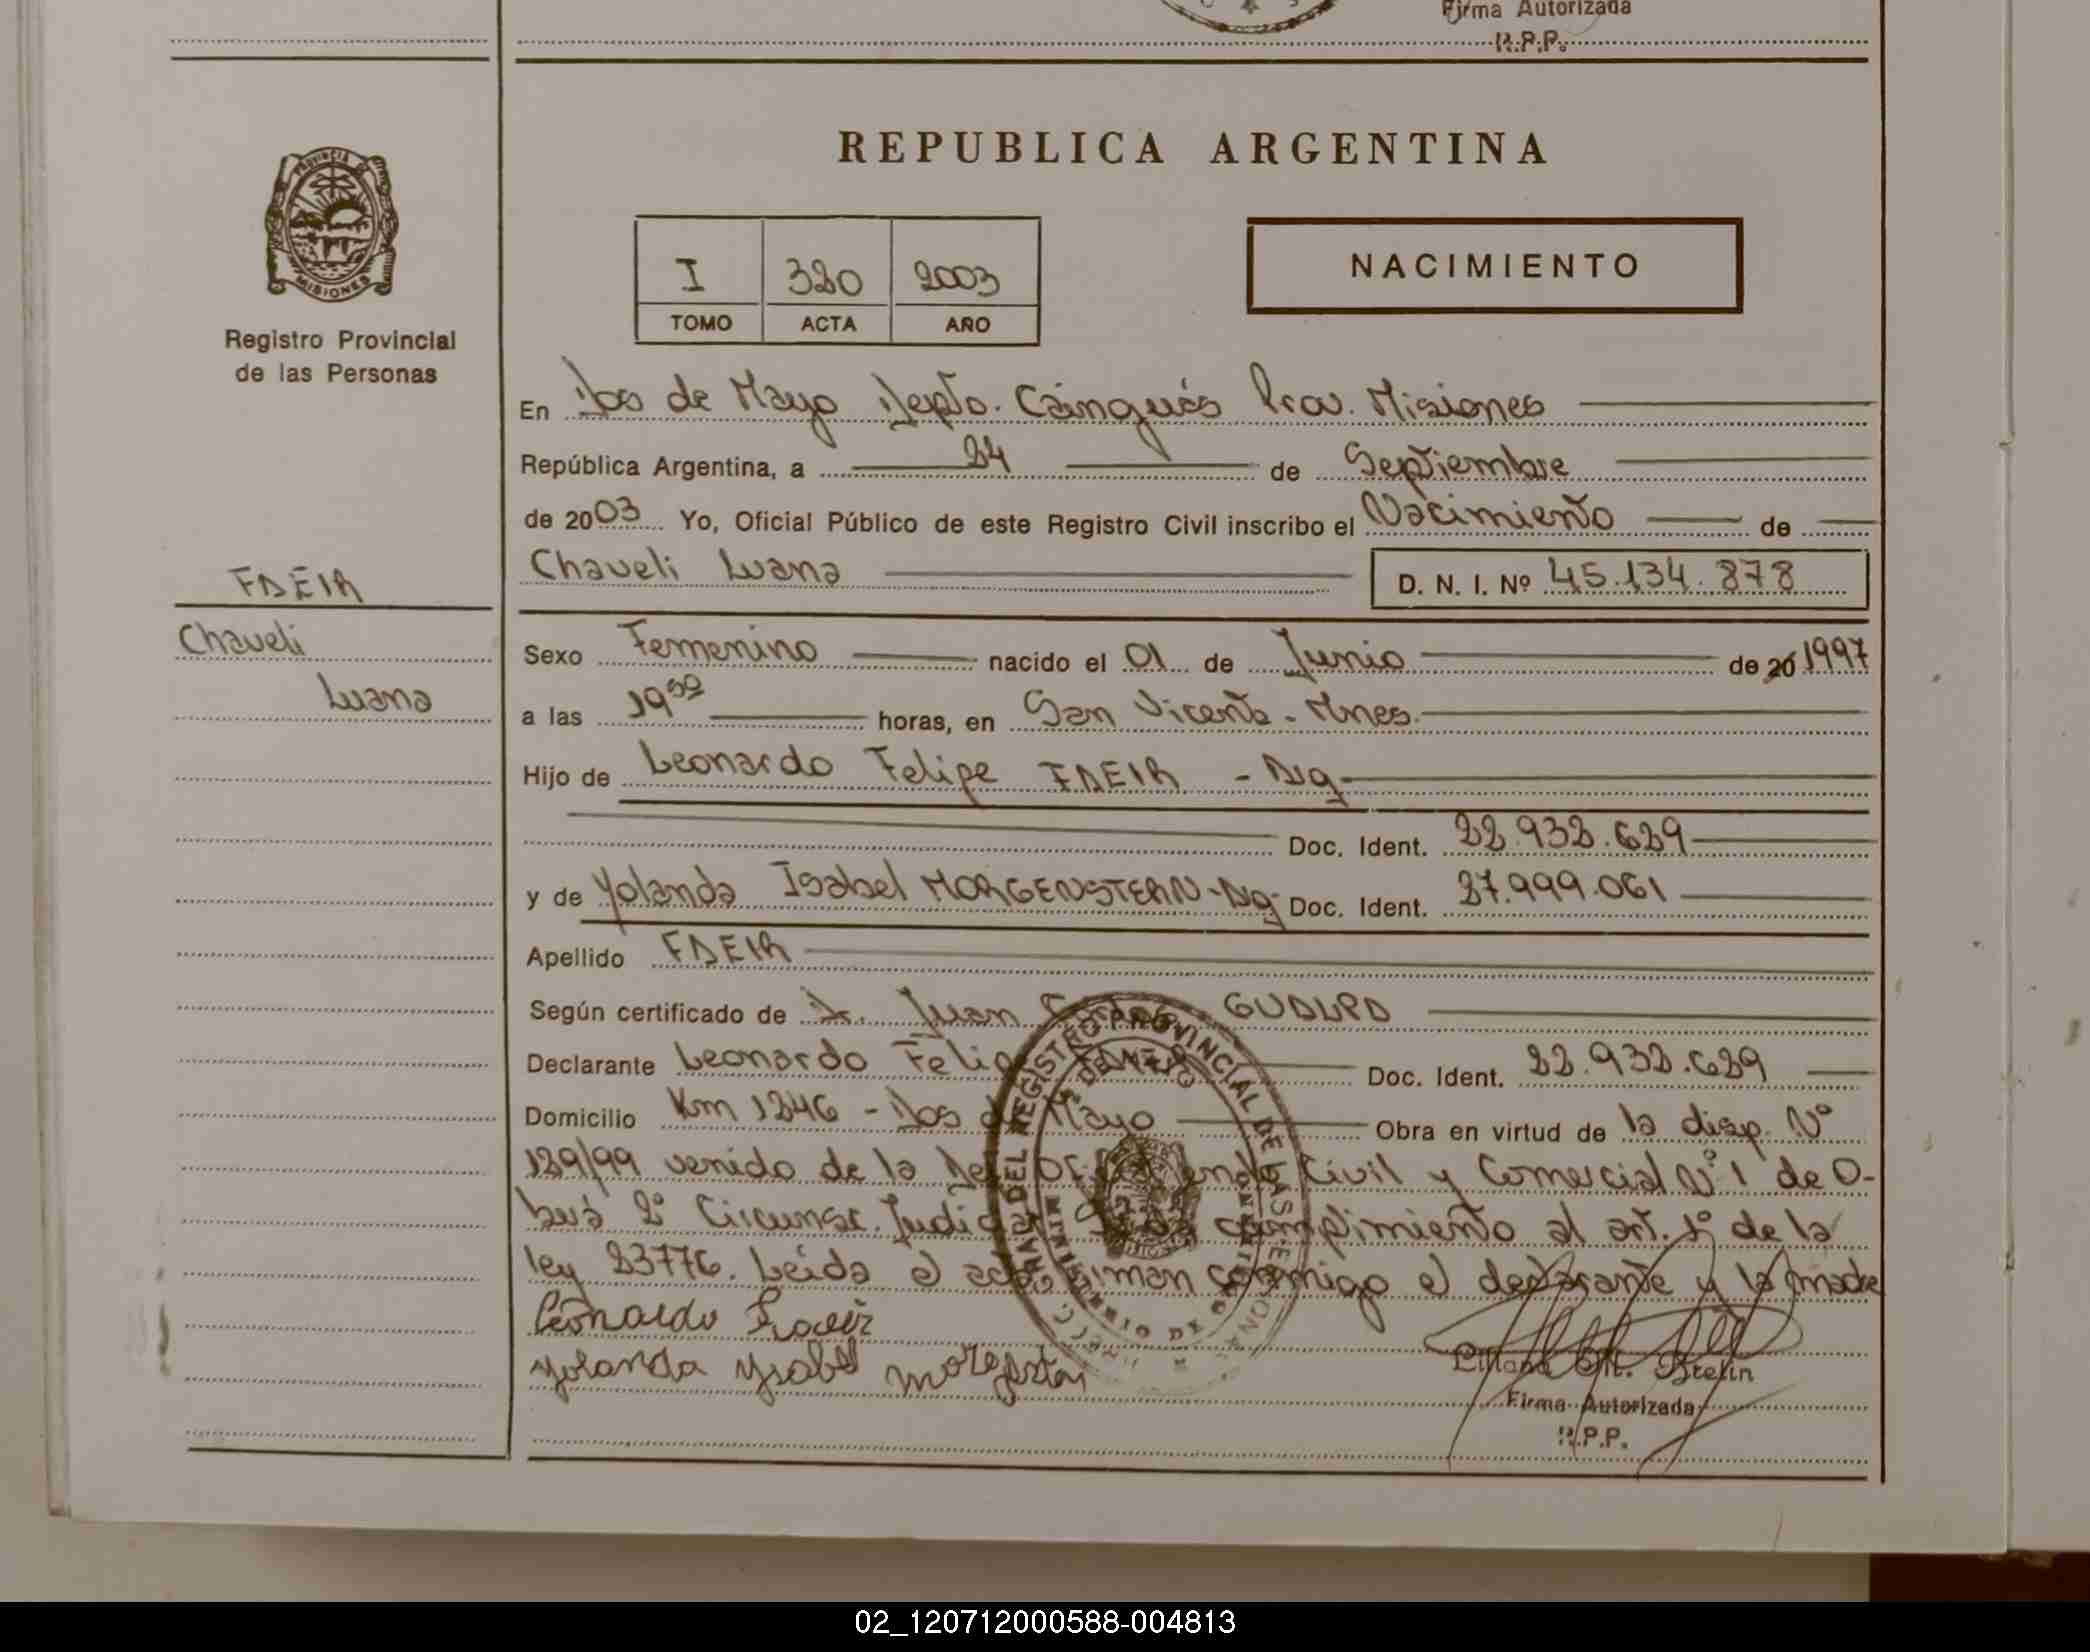 Firma Autorizada
R.P.P.
PROVINCIA DE
MISIONES
Registro Provincial
de las Personas
REPUBLICA ARGENTINA
I 320 2003
TOMO ACTA AÑO
NACIMIENTO
En Dos de Mayo Depto. Cainguás Prov. Misiones
República Argentina, a 24 de Septiembre
de 2003 Yo, Oficial Público de este Registro Civil inscribo el Nacimiento de
Chaveli Luana D. N. I. Nº 45.134.878
FDEIR
Chaveli
Luana
Sexo Femenino nacido el 01 de Junio de 20 1997
a las 19 horas, en San Vicente - Mnes.
Hijo de Leonardo Felipe FDEIR - Arg
Doc. Ident. 22.932.629
y de Yolanda Isabel MORGENSTERN - Arg Doc. Ident. 27.999.061
Apellido FDEIR
Según certificado de Dr. Juan Carlos
Declarante Leonardo Felipe Doc. Ident. 22.932.629
Domicilio Km 1246 - Dos de Mayo Obra en virtud de la disp. Nº
129/99 venido de la Def. Of. Civil y Comercial Nº 1 de O-
berá 2º Circunsc. Judicial cumplimiento al art. 1º de la
ley 23776. Leída el acta firman conmigo el declarante y la madre
Leonardo
Yolanda Ysabel
Liliana Brelin
Firma Autorizada
R.P.P.
REGISTRO PROVINCIAL DE LAS PERSONAS
DOS DE MAYO
02_120712000588-004813